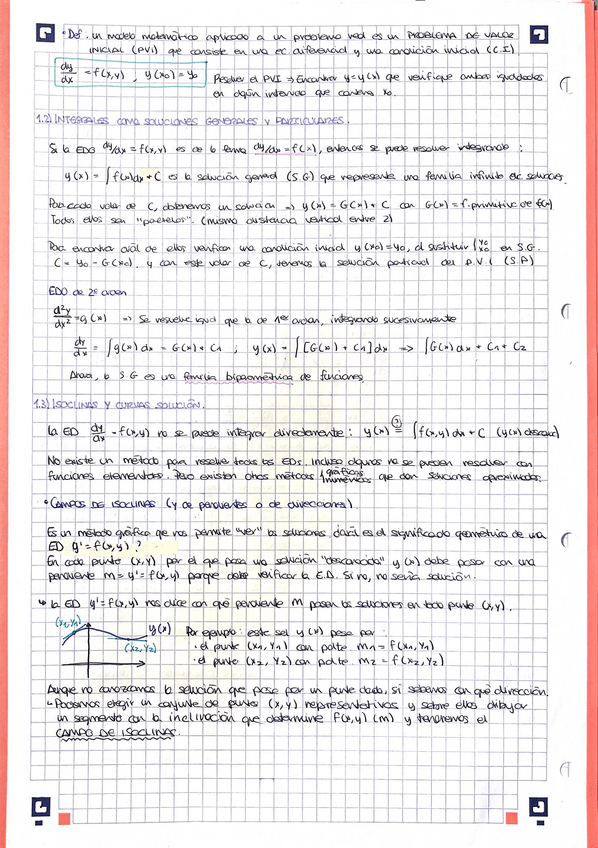 • Def: un modelo matemático aplicado a un problema real es un PROBLEMA DE VALOR
INICIAL (PVI) que consiste en una ec. diferencial y una condición inicial (C.I)
dy/dx = f(x,y) , y(x0) = y0
Resolver el PVI ⇒ Encontrar y=y(x) que verifique ambas igualdades
en algún intervalo que contenga x0.
1.2) INTEGRALES COMO SOLUCIONES GENERALES Y PARTICULARES.
Si la EDO dy/dx = f(x,y) es de la forma dy/dx = f(x), entonces se puede resolver integrando :
y(x) = ∫ f(x)dx + C es la solución general (S.G) que representa una familia infinita de soluciones.
Para cada valor de C, obtenemos un solución ⇒ y(x) = G(x) + C con G(x) = f. primitiva de f(x)
Todas ellas son "paralelas". (misma distancia vertical entre 2)
Para encontrar cuál de ellas verifican una condición inicial y(x0)=y0, al sustituir {y0 x0 en S.G.
C = y0 - G(x0). y con este valor de C, tenemos la solución particual del P.V.I (S.P)
EDO de 2º orden
d²y/dx² = g(x) ⇒ Se resuelve igual que la de 1er orden, integrando sucesivamente
dy/dx = ∫ g(x) dx = G(x) + C1 ; y(x) = ∫ [G(x) + C1] dx ⇒ ∫ G(x) dx + C1 + C2
Ahora, la S.G es una familia biparamétrica de funciones
1.3) ISOCLINAS Y CURVAS SOLUCIÓN.
La ED dy/dx = f(x,y) no se puede integrar directamente : y(x) =(?) ∫ f(x,y) dx + C (y(x) descon)
No existe un método para resolver todas las EDs. Incluso algunas no se pueden resolver con
funciones elementales. Pero existen otros métodos {gráficos numéricos que dan soluciones aproximadas.
• CAMPOS DE ISOCLINAS (y de pendientes o de direcciones).
Es un método gráfico que nos permite "ver" las soluciones. ¿Cuál es el significado geométrico de una
ED y' = f(x,y) ?
En cada punto (x,y) por el que pasa una solución "desconocida" y(x) debe pasar con una
pendiente m = y' = f(x,y) porque debe verificar la E.D. Si no, no sería solución.
↳ La ED y' = f(x,y) nos dice con qué pendiente m pasan las soluciones en todo punto (x,y).
(x1,y1)
y(x)
(x2,y2)
Por ejemplo : esta sol y(x) pasa por :
· el punto (x1,y1) con pdte. m1 = f(x1,y1)
· el punto (x2,y2) con pdte. m2 = f(x2,y2)
Aunque no conozcamos la solución que pasa por un punto dado, sí sabemos con qué dirección.
↳ Podemos elegir un conjunto de puntos (x,y) representativos y sobre ellos dibujar
un segmento con la inclinación que determine f(x,y) (m) y tendremos el
CAMPO DE ISOCLINAS.